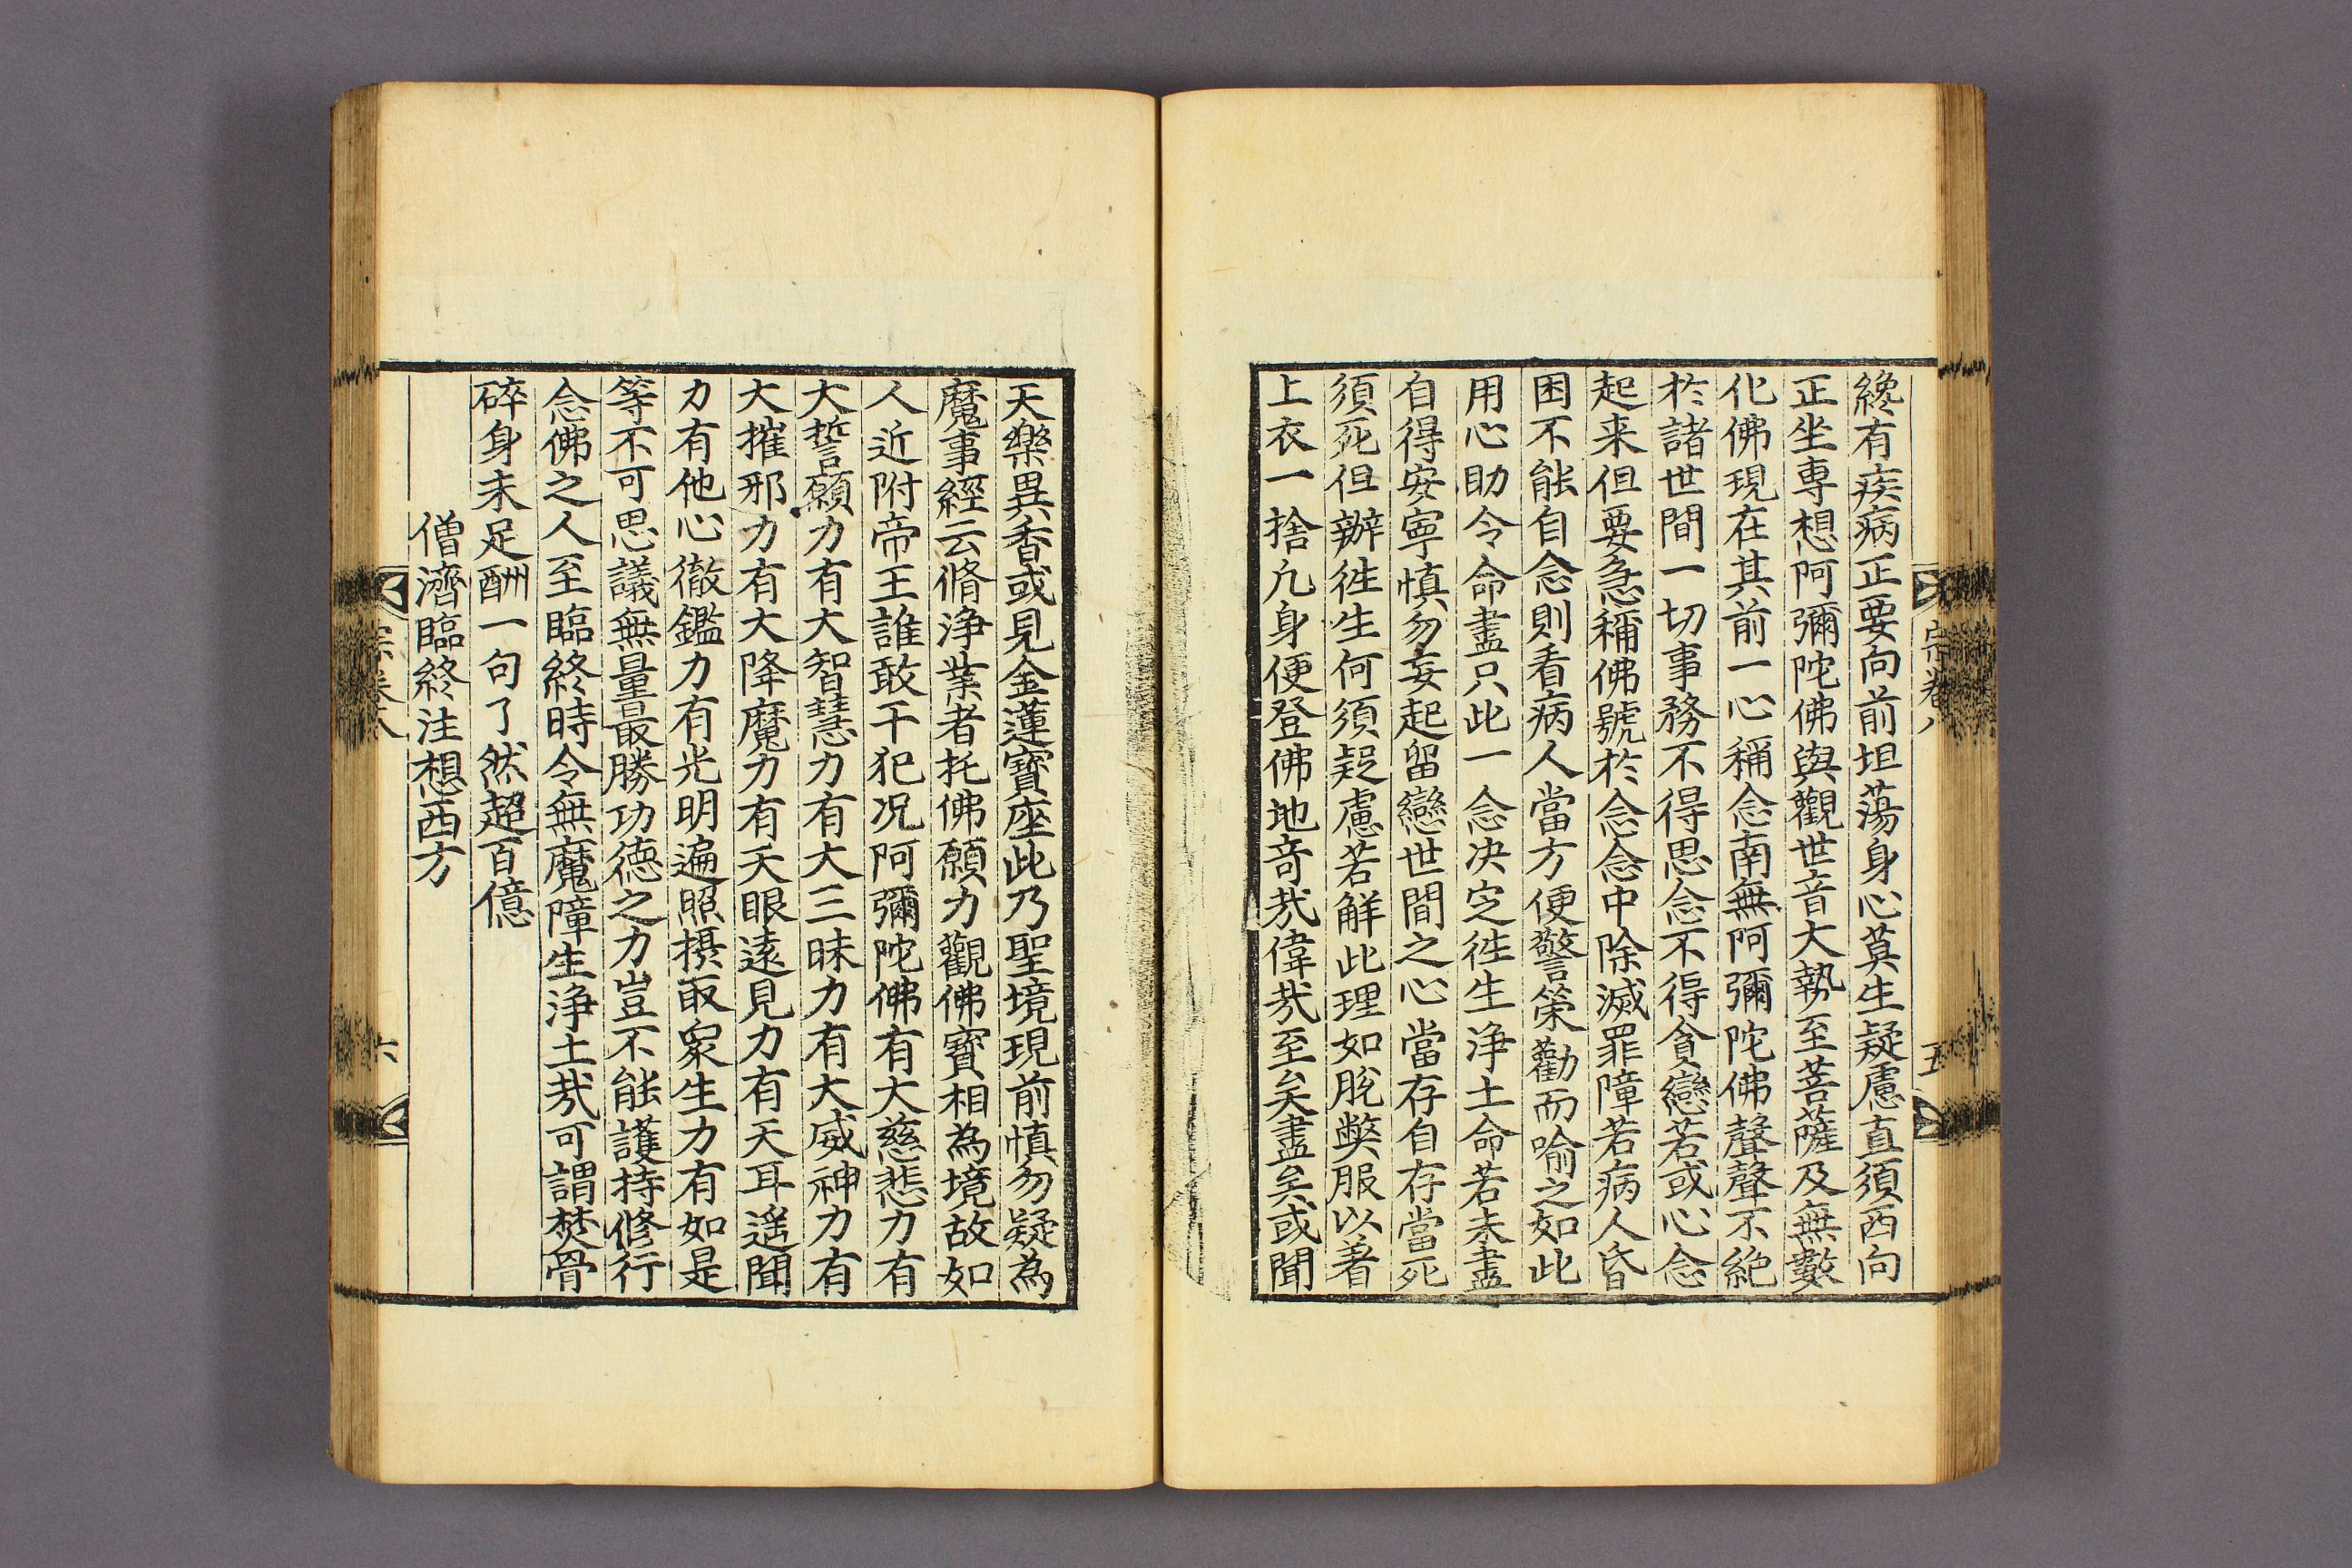 纔有疾病正要向前坦蕩身心莫生疑慮直須西向
正坐專想阿彌陀佛與觀世音大勢至菩薩及無數
化佛現在其前一心稱念南無阿彌陀佛聲聲不絶
扵諸世間一切事務不得思念不得貪戀若或心念
起来但要急稱佛號扵念念中除滅罪障若病人昏
困不能自念則看病人當方便警策勸而喻之如此
用心助令命盡只此一念决定徃生淨土命若未盡
自得安寧慎勿妄起留戀世間之心當存自存當死
須死但辦徃生何須疑慮若解此理如脫弊服以着
上衣一捨凡身便登佛地竒㦲偉㦲至矣盡矣或聞
宗卷八
五
天樂異香或見金蓮寶座此乃聖境現前慎勿疑為
魔事經云脩淨業者托佛願力觀佛寶相為境故如
人近附帝王誰敢干犯况阿彌陀佛有大慈悲力有
大誓願力有大智慧力有大三昧力有大威神力有
大摧邪力有大降魔力有天眼遠見力有天耳遥聞
力有他心徹鑑力有光明遍照攝取衆生力有如是
等不可思議無量最勝功德之力豈不能護持修行
念佛之人至臨終時令無魔障生淨土㦲可謂焚骨
碎身未足酬一句了然超百億
僧濟臨終注想西方
宗卷八
六